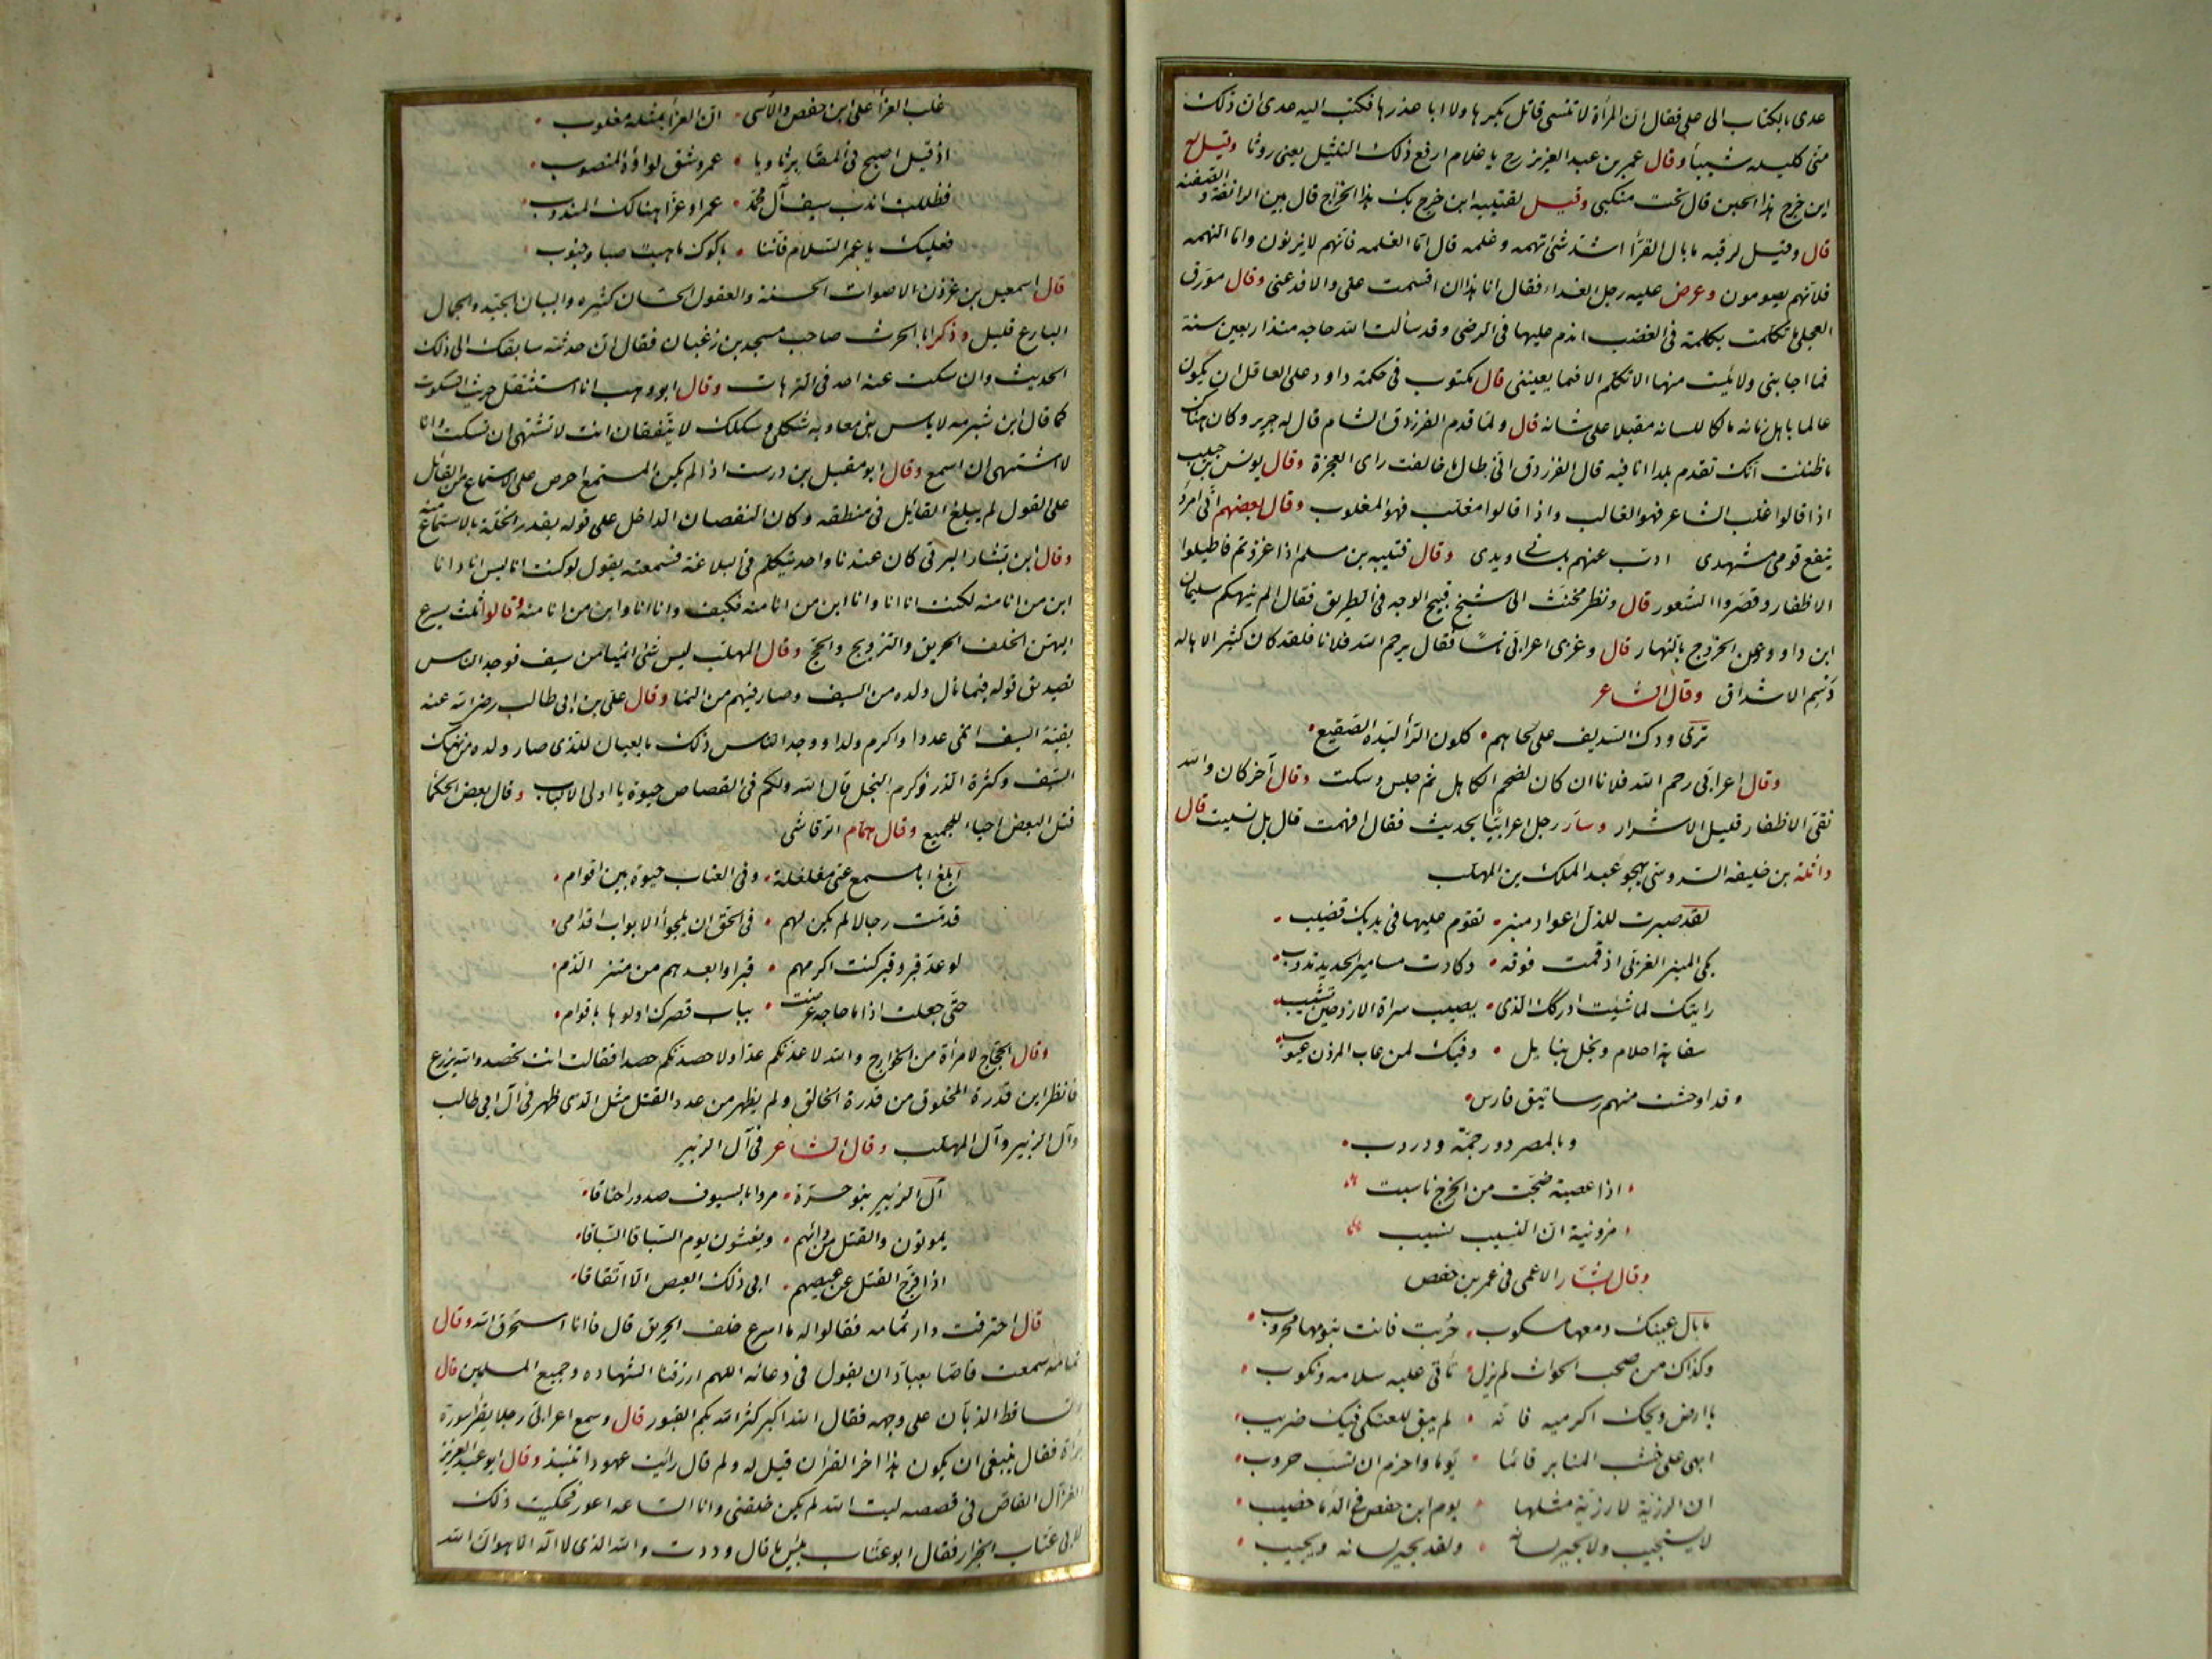 عدى بالكتاب الى على فقال ان المرأة لا تنسى قاتل بكرها ولا ابا عذرها فكتب اليه عدى ان ذلك
منى كليله شيباً وقال عمر بن عبد العزيز رح يا غلام ارفع ذلك النثيل يعنى روثا وقيل له
اين خرج هذا الحبن قال تحت منكبى وقيل لقتيبه اين خرج بك هذا الخراج قال بين الرانفة والصفنه
قال وقيل لرقبه ما بال القرأ اشد شئ نهمه وغلمه قال اما الغلمه فانهم لا يزنون واما النهمه
فلانهم يصومون وعرض عليه رجل الغداء فقال انا هذا ان اقسمت على والا فدعنى وقال مورق
العجلى ما تكلمت بكلمة فى الغضب اندم عليها فى الرضى وقد سألت الله حاجه منذ اربعين سنة
فما اجابنى ولا يئست منها الا تكلم الا فيما يعنينى قال مكتوب فى حكمة داود على العاقل ان يكون
عالما باهل زمانه مالكا للسانه مقبلا على شانه قال ولما قدم الفرزدق الشام قال له جرير وكان هناك
ما ظننت انك تقدم بلدا انا فيه قال الفرزدق انى طال ما خالفت راى العجزة وقال يونس بن حبيب
اذا قالوا غلب الشاعر فهو الغالب واذا قالوا مغلب فهو المغلوب وقال بعضهم انى امرؤ
ينفع قومى مشهدى اذب عنهم بلسانى ويدى وقال قتيبه بن مسلم اذا غزوتم فاطيلوا
الاظفار وقصروا الشعور قال ونظر مخنث الى شيخ قبيح الوجه فى الطريق فقال الم ينهكم سليمان
ابن داود عن الخروج بالنهار قال وعزى اعرابى ناسا فقال يرحم الله فلانا فلقد كان كثير الاهاله
دسم الاشداق وقال الشاعر
ترى ودك السديف على لحاهم كلون الرأ لبده الصقيع
وقال اعرابى رحم الله فلانا ان كان لضخم الكاهل ثم جلس وسكت وقال آخر كان والله
نقى الاظفار قليل الاشرار وسار رجل اعرابيا بحديث فقال افهمت قال بل نسيت قال
واثلة بن خليفه السدوسى يهجو عبد الملك بن المهلب
لقد صبرت للذل اعواد منبر تقوم عليها فى يديك قضيب
بكى المنبر الغربى اذ قمت فوقه وكادت مسامير الحديد تذوب
رايتك لما شئت ادركك الذى يصيب سراة الازد حين تشيب
سفاهة احلام وبخل بنايل وفيك لمن عاب المزون عيوب
وقد اوحشت منهم رساتيق فارس
وبالمصر دور جمة ودروب
اذا عصبة ضجت من الخرج ناسبت
مزونية ان النسيب نسيب
وقال بشار الاعمى فى عمر بن حفص
ما بال عينك دمعها مسكوب حربت فانت بنومها محروب
وكذاك من صحب الحوادث لم يزل تأتى عليه سلامه ونكوب
يا ارض ويحك اكرميه فانه لم يبق للعتكى فيك ضريب
ابهى على خشب المنابر قائما يوما واحزم ان تشب حروب
ان الرزية لا رزية مثلها يوم ابن حفص فى الدما خضيب
لا يستجيب ولا يحير لسانه ولقد يحير لسانه ويجيب
غلب العزأ على ابن حفص والاسى ان العزأ بمثله مغلوب
اذ قيل اصبح فى المقابر ثاويا عمر وشق لواؤه المنصوب
فظللت اندب سيف آل محمد عمرا وعز هنالك المندوب
فعليك يا عمر السلام فاننا باكوك ما هبت صبا وجنوب
قال اسمعيل بن غزوان الاصوات الحسنة والعقول الحسان كثيره والبيان الجيد والجمال
البارع قليل وذكر ابا الحرث صاحب مسجد بن رغبان فقال ان حدثته سابقك الى ذلك
الحديث وان سكت عنه اخذ فى الترهات وقال ابو وهب انا استثقل حديث السكوت
كما قال ابن شبرمه لاياس بن معاويه شكلى وشكلك لا يتفقان انت لا تشتهى ان تسكت وانا
لا اشتهى ان اسمع وقال ابو مقبل بن درست اذا لم يكن المستمع احرص على الاستماع من القائل
على القول لم يبلغ القائل فى منطقه وكان النقصان الداخل على قوله بقدر الخلة بالاستماع منه
وقال ابن بشار البرقى كان عندنا واحد يتكلم فى البلاغة فسمعته يقول لو كنت انا ليس انا وانا
ابن من انا منه لكنت انا انا وانا ابن من انا منه فكيف وانا انا وابن من انا منه وقالوا ثلث يسرع
اليهن الخلف الحريق والتزويج والحج وقال المهلب ليس شئ انمى من سيف فوجد الناس
تصديق قوله فيما نال ولده من السيف وصار فيهم من النما وقال على بن ابى طالب رضى الله عنه
بقية السيف انمى عددا واكرم ولدا ووجد الناس ذلك بالعيان للذى صار ولده من نهك
السيف وكثرة الذرو وكرم النجل قال الله ولكم فى القصاص حيوة يا اولى الالباب وقال بعض الحكما
قتل البعض احياء للجميع وقال همام الرقاشى
ابلغ ابا مسمع عنى مغلغلة وفى العتاب حيوة بين اقوام
قدمت رجالا لم يكن لهم فى الحق ان يلجوا الابواب قدامى
لو عد قبر وقبر كنت اكرمهم قبرا وابعدهم من منزل الذم
حتى جعلت اذا ما حاجه عرضت بباب قصرك ادلوها باقوام
وقال الحجاج لامرأة من الخوارج والله لاعدنكم عدا ولا حصدنكم حصدا فقالت انت تحصد والله يزرع
فانظر اين قدرة المخلوق من قدرة الخالق ولم يظهر من عدد القتل مثل الذى ظهر فى آل ابى طالب
وآل الزبير وآل المهلب وقال الشاعر فى آل الزبير
آل الزبير بنو حرة مروا بالسيوف صدورا حناقا
يموتون والقتل من دائهم ويغشون يوم السباق السباقا
اذا فرج القتل عن عيصهم ابى ذلك العيص الا اتفاقا
قال احترقت دار ثمامه فقالوا له ما اسرع خلف الحريق قال فانا استحرق الله وقال
ثمامه سمعت قاصا بعبادان يقول فى دعائه اللهم ارزقنا الشهاده وجميع المسلمين قال
وتساقط الذبان على وجهه فقال الله اكبر كثر الله بكم القبور قال وسمع اعرابى رجلا يقرأ سورة
برأة فقال ينبغى ان يكون هذا اخر القرأن قيل له ولم قال رأيت عهودا تنبذ وقال ابو عبد العزيز
الغزال القاص فى قصصه ليت الله لم يكن خلقنى وانا الساعه اعور فحكيت ذلك
لابى عتاب الجزار فقال ابو عتاب بئس ما قال وددت والله الذى لا اله الا هو ان الله